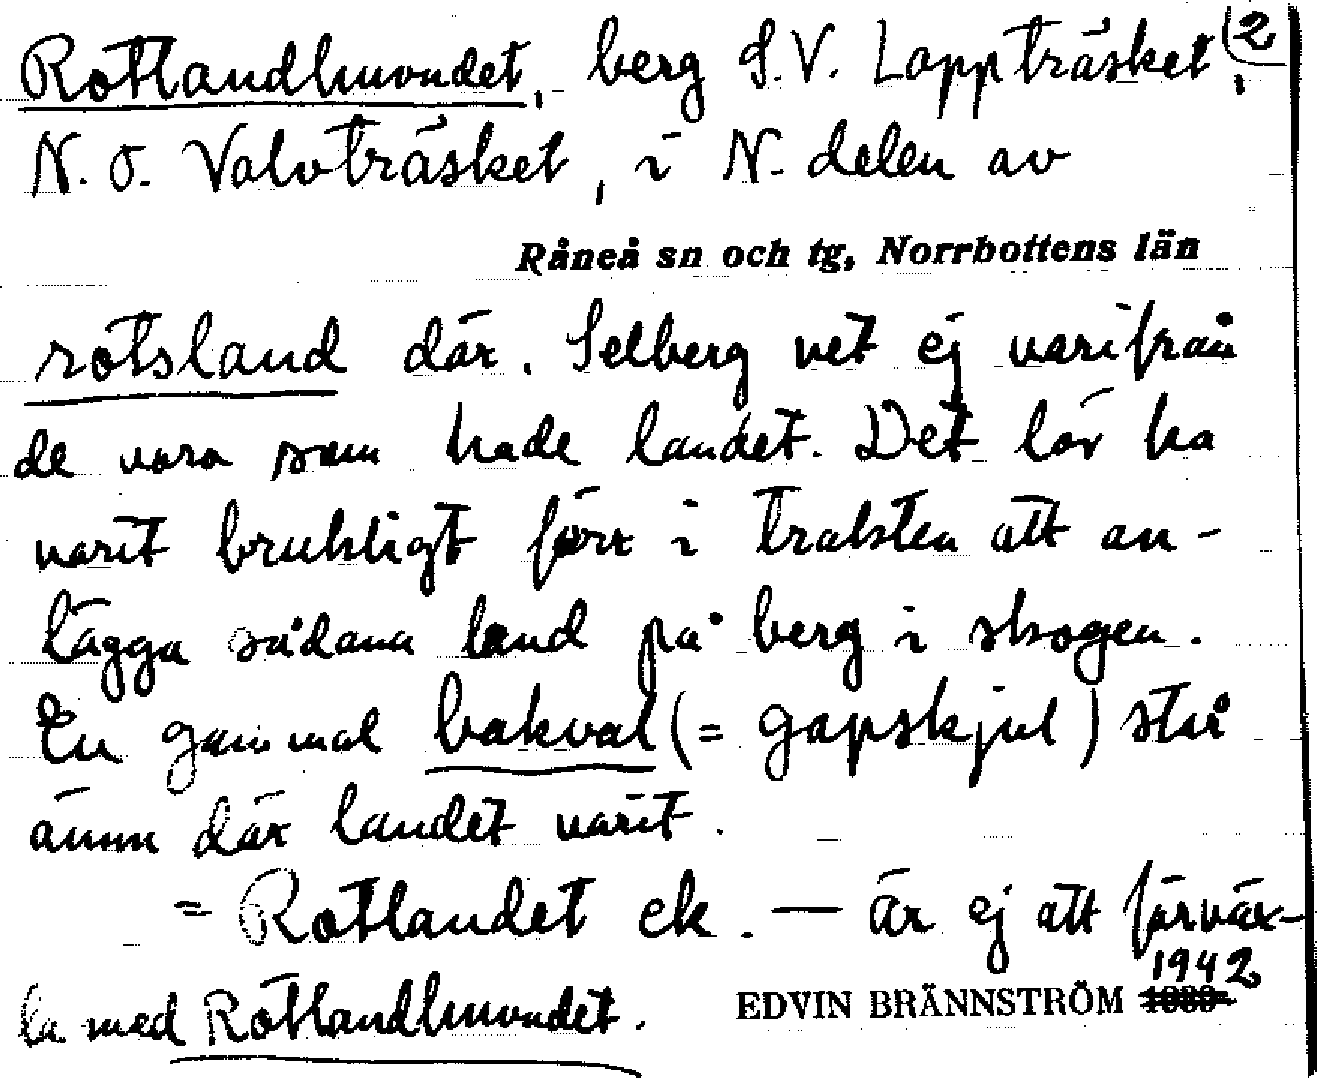 Rotlandhuvudet, berg S.V. Lappträsket, (2
N. O. Valvträsket, i N. delen av
Råneå sn och tg, Norrbottens län
rotsland där. Selberg vet ej varifrån
de vora som hade landet. Det lär ha
varit brukligt förr i trakten att an-
lägga sådana land på berg i skogen.
En gammal bakval (= gapskjul) står
ännu där landet varit.
= Rotlandet ek. — är ej att förväx-
la med Rotlandhuvudet.
1942
EDVIN BRÄNNSTRÖM